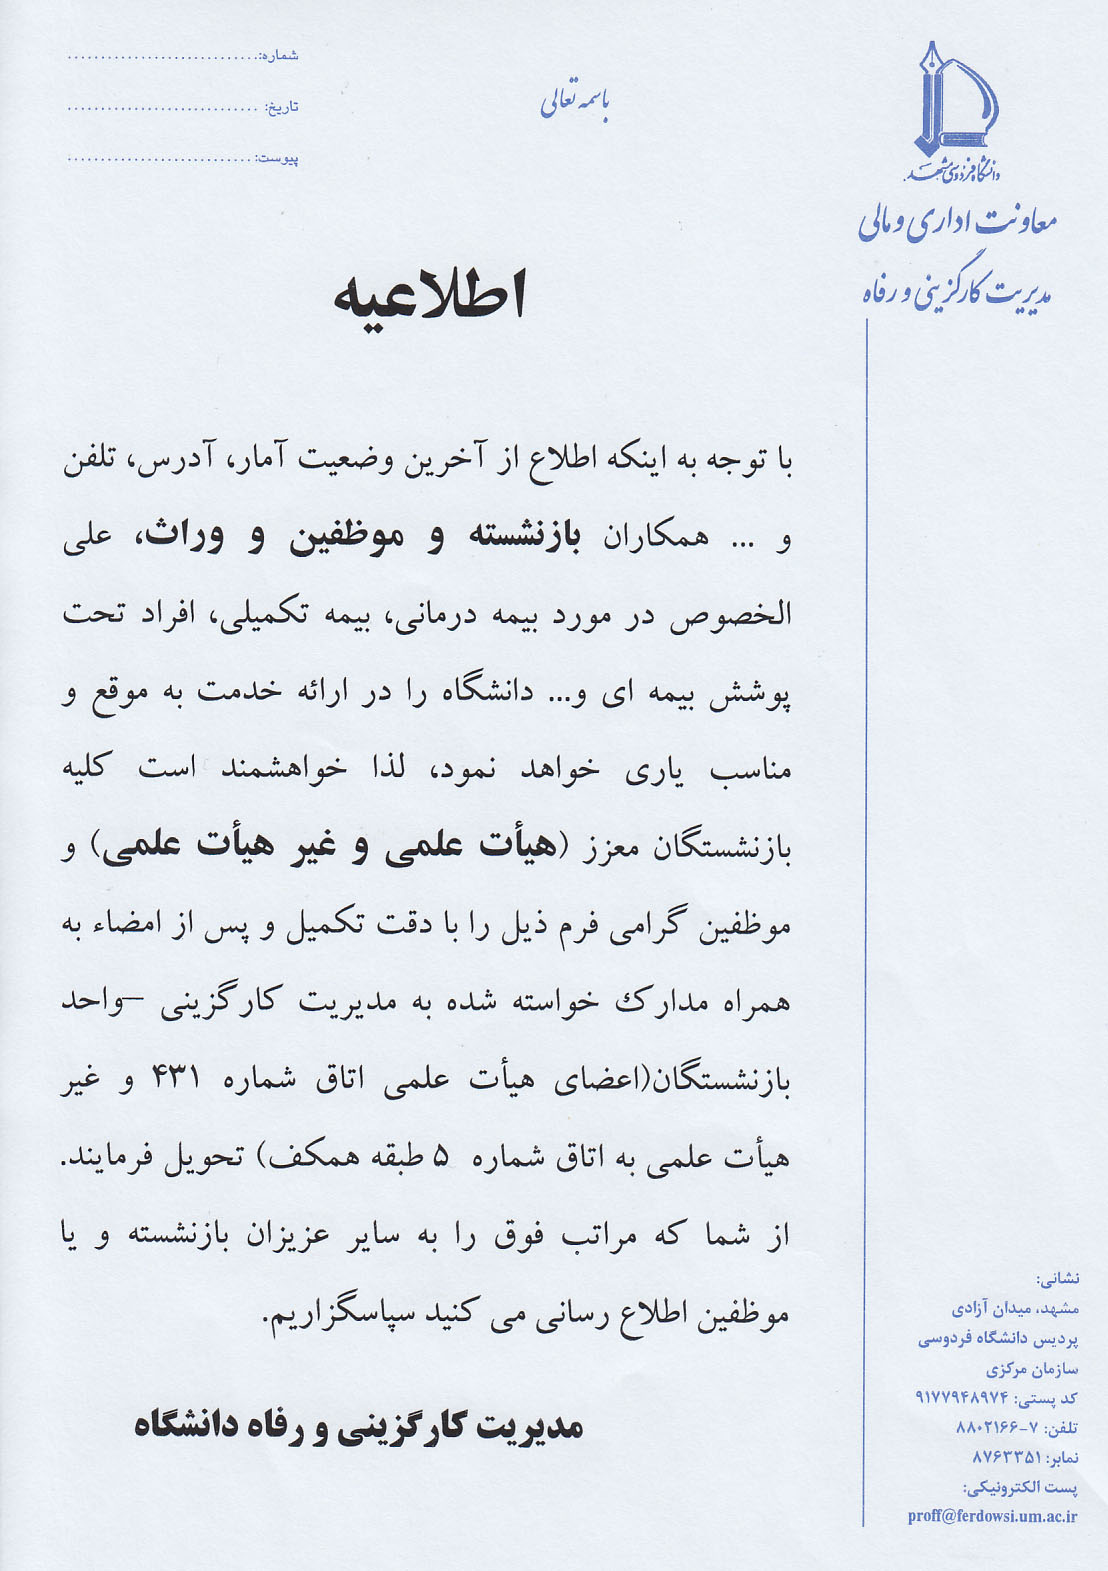 باسمه تعالی
شماره:............................
تاریخ: ............................
پیوست:............................
دانشگاه فردوسی مشهد
معاونت اداری و مالی
مدیریت کارگزینی و رفاه
اطلاعیه
با توجه به اینکه اطلاع از آخرین وضعیت آمار، آدرس، تلفن
و ... همکاران بازنشسته و موظفین و وراث، علی
الخصوص در مورد بیمه درمانی، بیمه تکمیلی، افراد تحت
پوشش بیمه ای و... دانشگاه را در ارائه خدمت به موقع و
مناسب یاری خواهد نمود، لذا خواهشمند است کلیه
بازنشستگان معزز (هیأت علمی و غیر هیأت علمی) و
موظفین گرامی فرم ذیل را با دقت تکمیل و پس از امضاء به
همراه مدارک خواسته شده به مدیریت کارگزینی –واحد
بازنشستگان(اعضای هیأت علمی اتاق شماره ۴۳۱ و غیر
هیأت علمی به اتاق شماره ۵ طبقه همکف) تحویل فرمایند.
از شما که مراتب فوق را به سایر عزیزان بازنشسته و یا
موظفین اطلاع رسانی می کنید سپاسگزاریم.
مدیریت کارگزینی و رفاه دانشگاه
نشانی:
مشهد، میدان آزادی
پردیس دانشگاه فردوسی
سازمان مرکزی
کد پستی: ۹۱۷۷۹۴۸۹۷۴
تلفن: ۷-۸۸۰۲۱۶۶
نمابر: ۸۷۶۳۳۵۱
پست الکترونیکی:
proff@ferdowsi.um.ac.ir